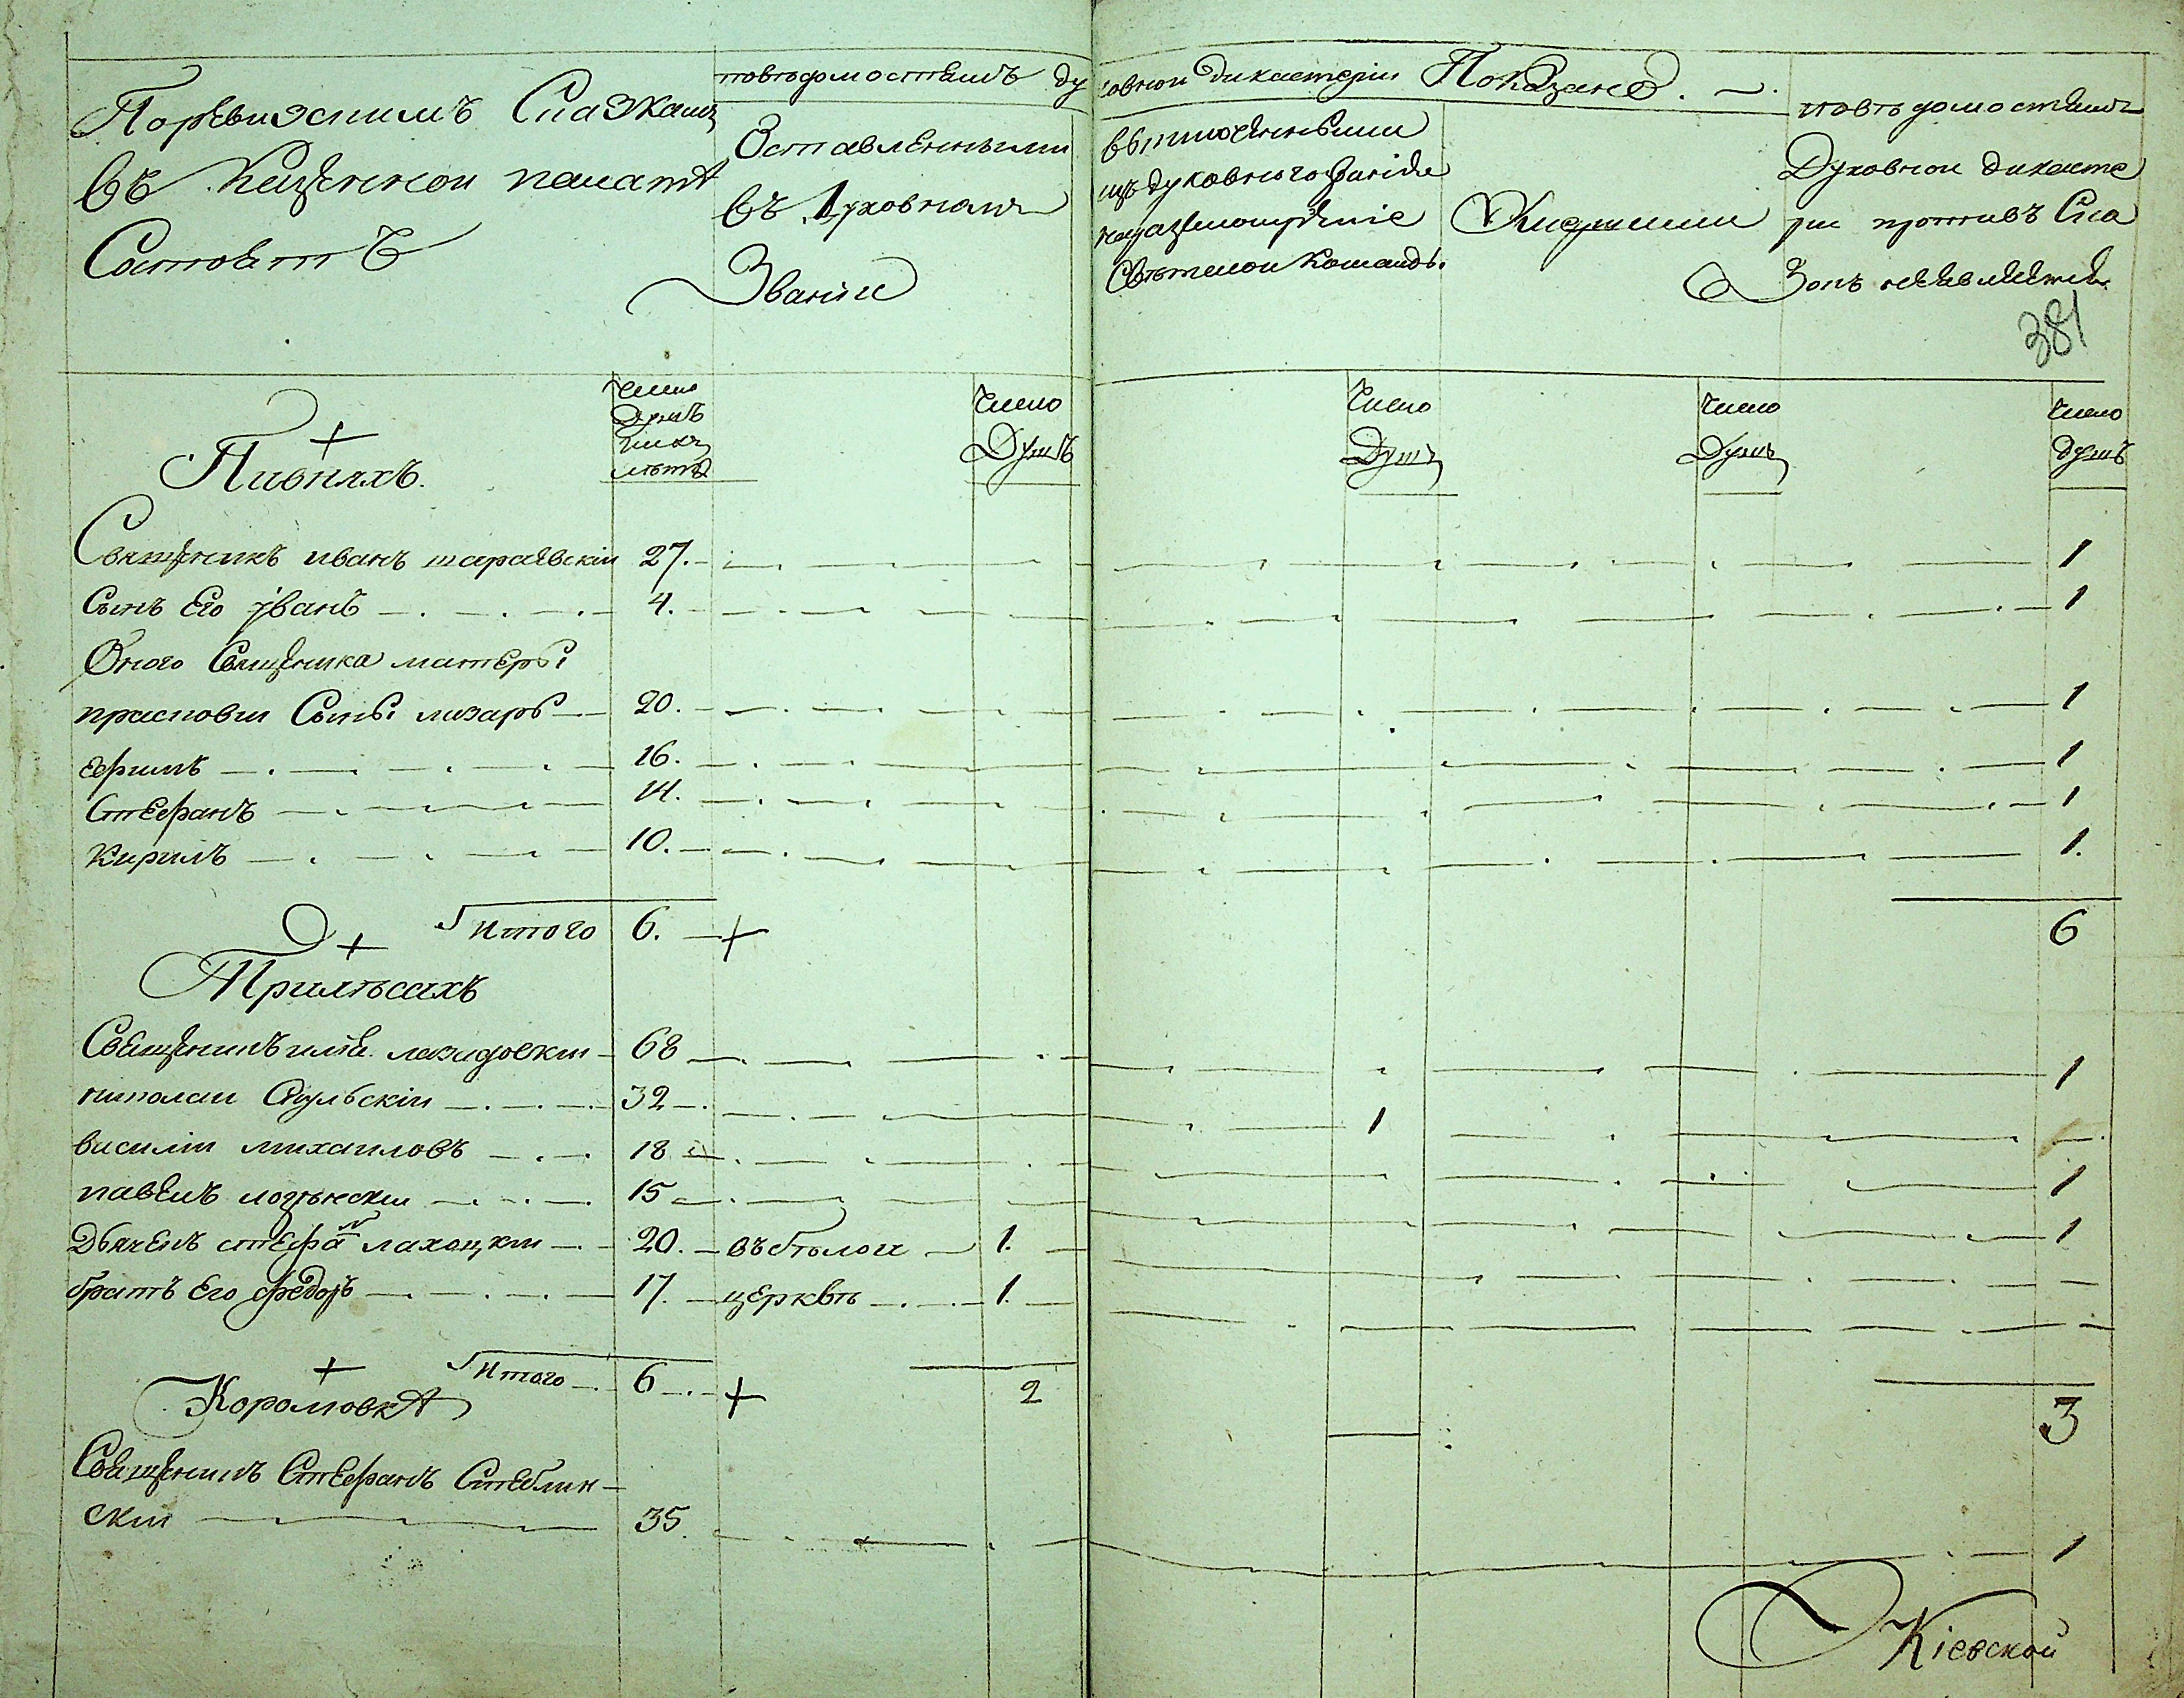 Поревизскимъ Сказкамъ
въ Казенной палатѣ
Состоитъ
повѣдомостямъ духовной дикастеріи Показано.
Оставленными
въ Духовномъ
Званіи
выключенными
изъ духовного званія
на размотреніе
Свѣтской Команды.
Умершими
повѣдомостямъ
Духовной дикасте
ріи противъ Ска
Зокъ неявляется
381
Число
Душъ
Число
Душъ
Число
Душъ
Число
Душъ
Число
душъ
лѣта
Пивняхъ.
Священникъ иванъ тараевскій 27. 1
Сынъ Его іванъ 4. 1
Оного Священика матеры
прасковіи Сыны лазарь 20. 1
ефимъ 16. 1
Стефанъ 14. 1
Кирилъ 10. 1.
Итого 6. 6
Трилѣсахъ
Священикъ илія 68 1
николай 32 1
василій михаиловъ 18 1
павелъ 15 1
Дьячекъ стефан лахоцкій 20. въ 1.
братъ Его федоръ 17. церквѣ 1.
Итого 6 2 3
Королювка
Священикъ Стефанъ Стеблин-
скій 35. 1
Кіевской